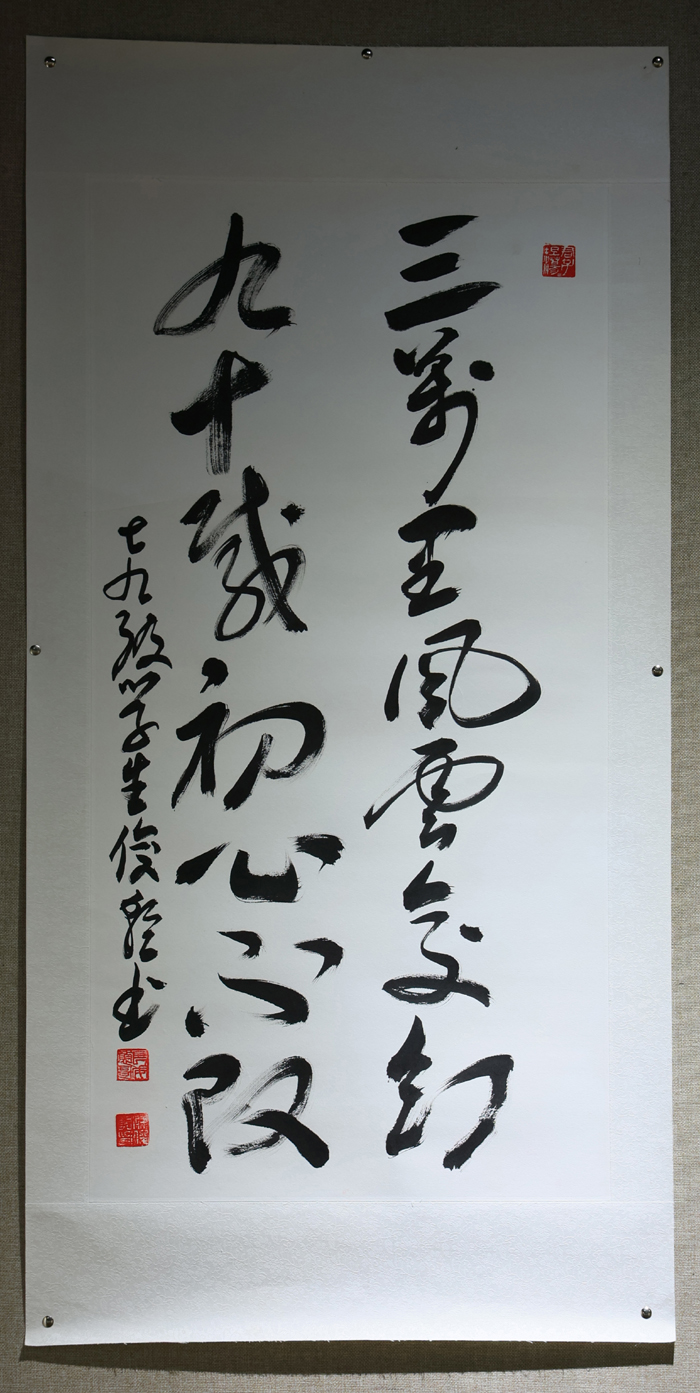 三萬里風雲變幻
九十載初心不改
七九级学生俊书